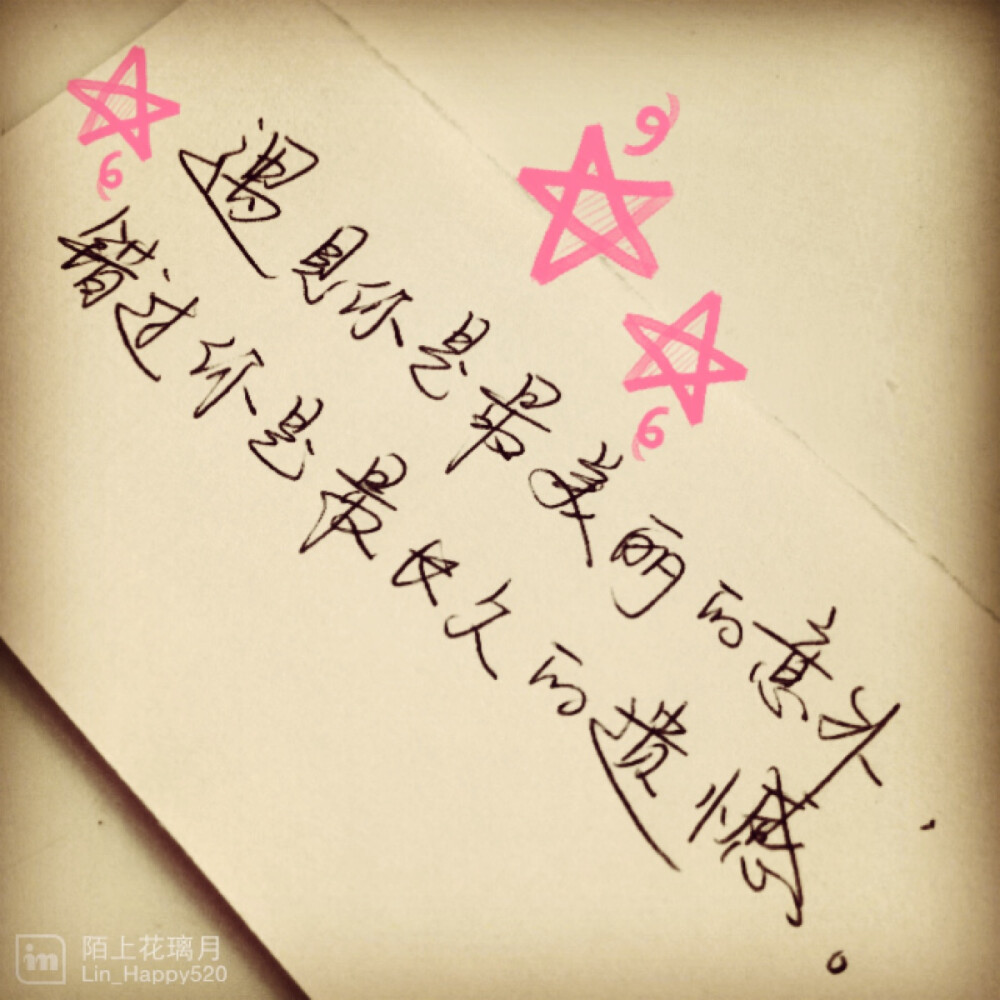 遇见你是最美丽的意外.
错过你是最长久的遗憾。
陌上花璃月
Lin_Happy520